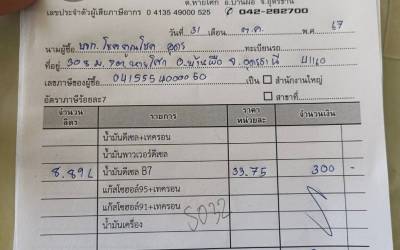 ต.หายโศก อ.บ้านผือ จ.อุดรธานี
เลขประจำตัวผู้เสียภาษีอากร 0 4135 49000 525 042-282700
วันที่ 31 เดือน ต.ค. พ.ศ. 67
นามผู้ซื้อ หจก. โชคคูณโชค อุดร ทะเบียนรถ
ที่อยู่ 308 ม.7 ต.หายโศก อ.บ้านผือ จ.อุดรธานี 41160
เลขภาษีของผู้ซื้อ 0415554000060 เป็น สำนักงานใหญ่
อัตราภาษีร้อยละ7 สาขาที่
จำนวนลิตร รายการ ราคาหน่วยละ จำนวนเงิน
น้ำมันดีเซล+เทครอน
น้ำมันพาวเวอร์ดีเซล
8.89L น้ำมันดีเซล B7 33.75 300 -
แก๊สโซฮอล์95+เทครอน
แก๊สโซฮอล์91+เทครอน
น้ำมันเครื่อง
5032